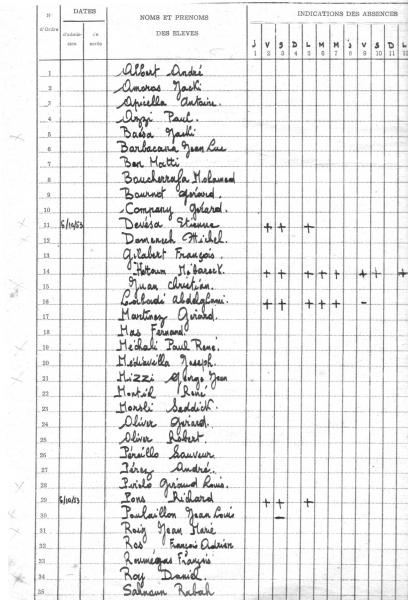 N° d'Ordre DATES d'admission de sortie NOMS ET PRENOMS DES ELEVES INDICATIONS DES ABSENCES
J V S D L M M J V S D L
1 2 3 4 5 6 7 8 9 10 11 12
1 Albert André
2 Amoros Jacki
3 Apicella Antoine.
4 Azzi Paul.
5 Baësa Jacki
6 Barbacana Jean Luc
7 Ben Matti
8 Boucherrafa Mohamed
9 Bournot Gérard.
10 Company Gérard.
11 5/10/53 Devésa Etienne + + +
12 Domenech Michel.
13 Gilabert François.
14 Hattoun M'barek + + + + + + + + +
15 Juan Christian.
16 + + + + + -
17 Martinez Gérard.
18 Mas Fernand
19 Méchali Paul René.
20 Médiavilla Joseph.
21 Mizzi George Jean
22 René
23 Morsli Seddick.
24 Oliver Gérard.
25 Oliver Robert.
26 Sauveur
27 Pérez André.
28 Giraud Louis.
29 5/10/53 Pons Richard + + +
30 Poulaillon Jean Louis -
31 Roig Jean Marié
32 Ros François Adrien
33 Roumégas François
34 Roy Daniel
35 Sahnoun Rabah